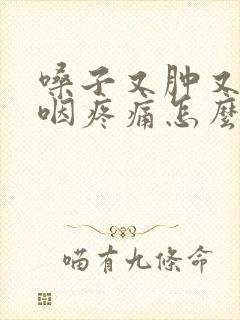 嗓子又肿又
咽疼痛怎麼
喵有九條命